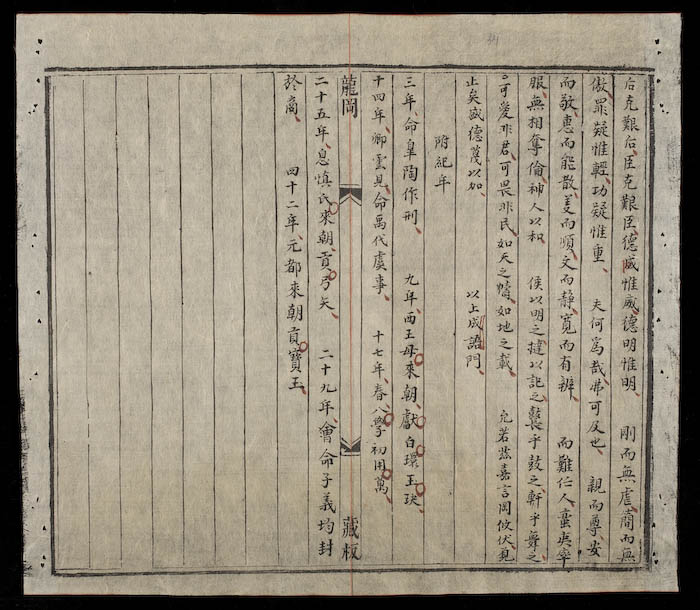 后克艱后臣克艱臣德威惟威德明惟明　剛而無虐簡而無
傲罪疑惟輕功疑惟重　夫何為哉弗可及也　親而尊安
而敬惠而能散義而順文而静寬而有辨　而難任人蠻夷率
服無相奪倫神人以和　侯以明之撻以記之鼚乎鼓之軒乎舞之
可愛非君可畏非民如天之幬如地之載　允若茲嘉言罔攸伏見
止矣盛德蔑以加　以上成語門
附紀年
三年命皇陶作刑　九年西王母來朝獻白環玉玦
十四年卿雲見命禹代虞事　十七年春入學初用萬
龍岡　藏板
二十五年息慎氏來朝貢弓矢　二十九年命子義均封
於商　四十二年元都來朝貢寶玉